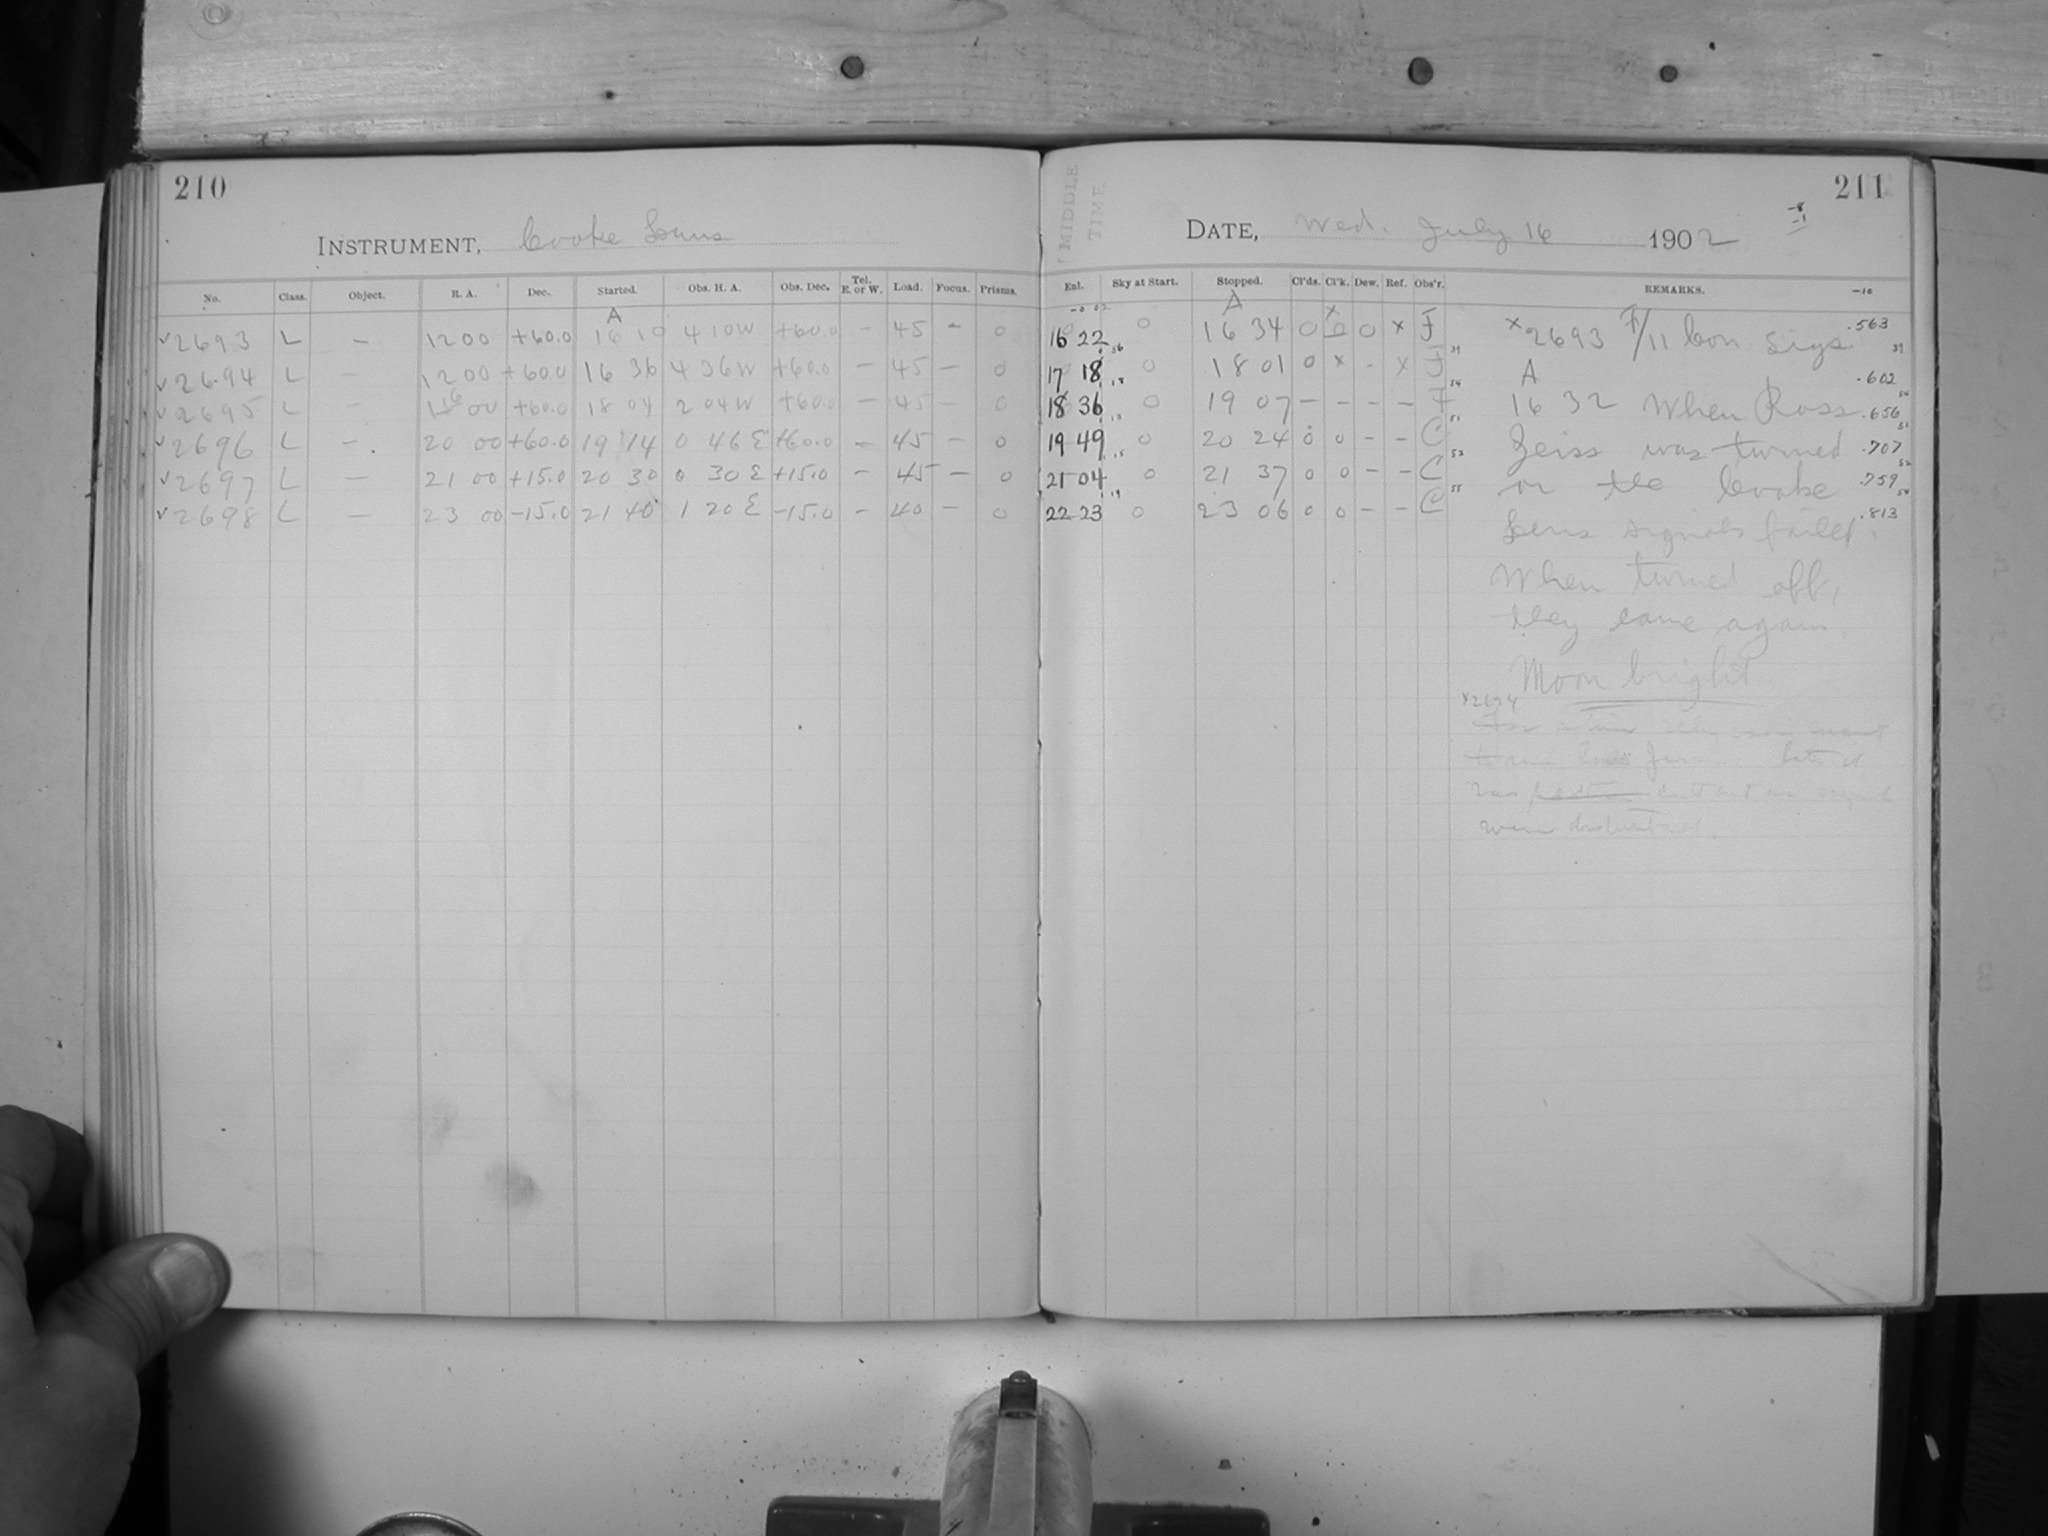 210
INSTRUMENT, Cooke Lens
No. Class. Object. R. A. Dec. Started. Obs. H. A. Obs. Dec. Tel. E. or W. Load. Focus. Prisms.
A
✓2693 L – 12 00 +60.0 16 10 4 10W +60.0 – 45 – 0
✓2694 L – 12 00 +60.0 16 36 4 36W +60.0 – 45 – 0
✓2695 L – 16 00 +60.0 18 04 2 04W +60.0 – 45 – 0
✓2696 L – 20 00 +60.0 19 14 0 46E +60.0 – 45 – 0
✓2697 L – 21 00 +15.0 20 30 0 30E +15.0 – 45 – 0
✓2698 L – 23 00 –15.0 21 40 1 20E –15.0 – 40 – 0
211
MIDDLE
TIME
DATE, Wed. July 16 1902
-8
-1
Enl. Sky at Start. Stopped. Cl'ds. Cl'k. Dew. Ref. Obs'r. REMARKS. -10
A
16 22 0 16 34 0 0 0 x F x2693 F/11 Con Sigs .563
17 18 0 18 01 0 x - x F A .602
18 36 0 19 07 – – – – F 16 32 When Ross .656
19 49 0 20 24 0 0 – – C Zeiss was turned .707
21 04 0 21 37 0 0 – – C on the Cooke .759
22 23 0 23 06 0 0 – – C Lens signals failed. .813
When turned off,
they came again
Moon bright
x2694